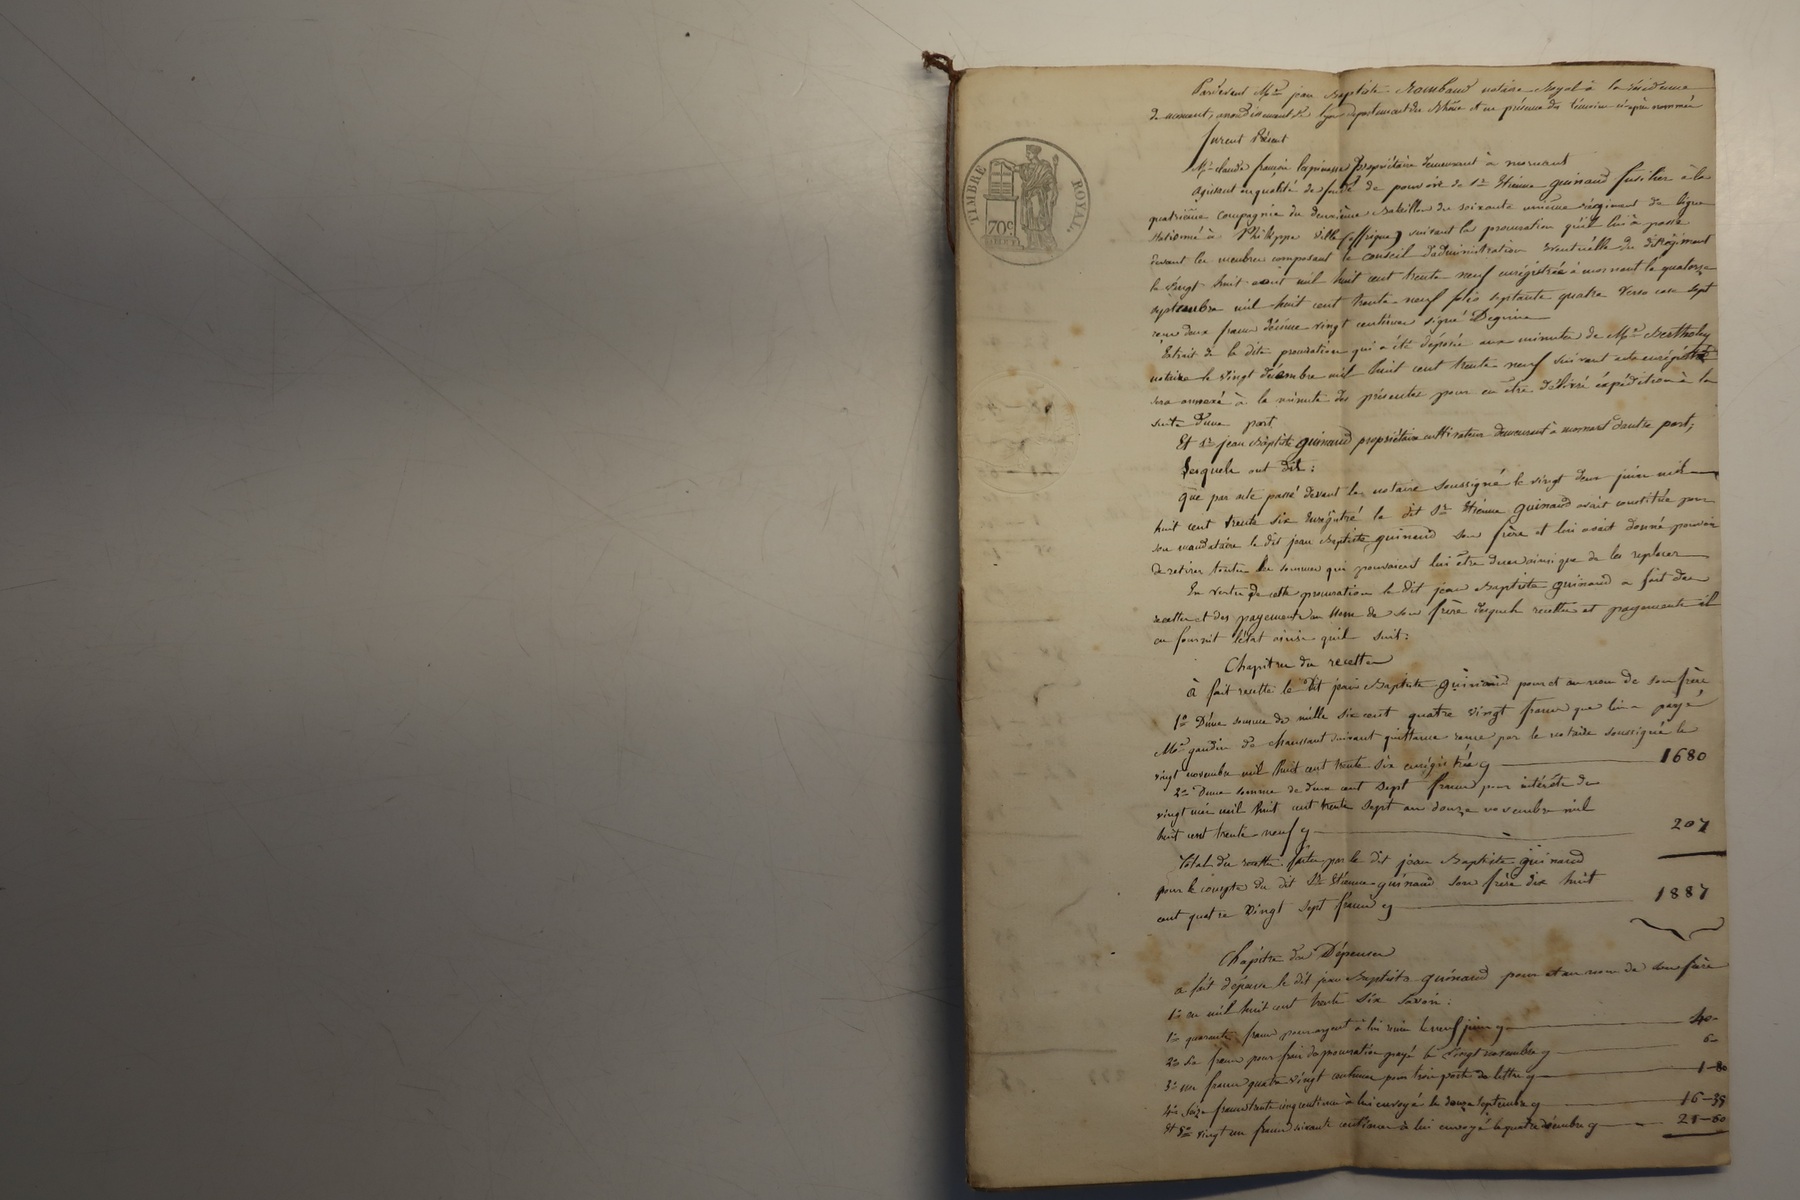 TIMBRE ROYAL.
70c.
Pardevant Me jean Baptiste Rombaud notaire Royal à la résidence
de mornant, arrondissement de lyon departement du Rhône et en présence des témoins ci-après nommés
furent Présent
Mr claude françois lapinasse propriétaire demeurant à mornant
agissant en qualité de fondé de pouvoir de Sr Etienne guinaud fusilier à la
quatrième compagnie du deuxième Bataillon du soixante unième régiment de ligne
stationné à Philippe ville (affrique) suivant la procuration qu'il lui à passé
devant les membres composant le conseil d'administration éventuelle du dit Régiment
le vingt huit août mil huit cent trente neuf enrégistrée à mornant le quatorze
septembre mil huit cent trente neuf folio septante quatre verso case sept
reçu deux francs décime vingt centimes signé
Extrait de la dite procuration qui a été déposée aux minutes de Me Bertholey
notaire le vingt décembre mil huit cent trente neuf suivant acte enrégistré
sera annexé à la minute des présentes pour en être délivré expédition à la
suite d'une part
Et Sr jean Baptiste guinaud propriétaire cultivateur demeurant à mornant d'autre part;
Lesquels ont dit :
Que par acte passé devant le notaire soussigné le vingt deux juin mil
huit cent trente six enrégistré le dit Sr Etienne guinaud avait constitué pour
son mandataire le dit jean Baptiste guinaud son frère et lui avait donné pouvoir
de retirer toutes les sommes qui pouvaient lui être dues ainsi que de les replacer
En vertu de cette procuration le dit jean Baptiste guinaud a fait des
recettes et des payements au nom de son frère desquels recettes et payements il
en fournit l'état ainsi qu'il suit :
Chapitre des recettes
à fait recette le dit jean Baptiste guinaud pour et au nom de son frère
1o D'une somme de mille six cent quatre vingt francs que lui a payé
Mr gaudin de chaussant suivant quittance reçue par le notaire soussigné le
vingt novembre mil huit cent trente six enrégistrée 1680
2o D'une somme de deux cent sept francs pour intérêts de
vingt mai mil huit cent trente sept au douze novembre mil
huit cent trente neuf 207
Total des recettes faites par le dit jean Baptiste guinaud
pour le compte du dit Sr Etienne guinaud son frère dix huit
cent quatre vingt sept francs 1887
Chapitre des Dépenses
a fait dépense le dit jean Baptiste guinaud pour et au nom de son frère
1o en mil huit cent trente six savoir :
1o quarante francs pour argent à lui remis le neuf juin 40-
2o six francs pour frais de procuration payé le vingt novembre 6-
3o un franc quatre vingt centimes pour trois ports de lettre 1-80
4o Seize francs trente cinq centimes à lui envoyé le douze septembre 16-35
Et 5o vingt un francs soixante centimes à lui envoyé le quatre décembre 21-60